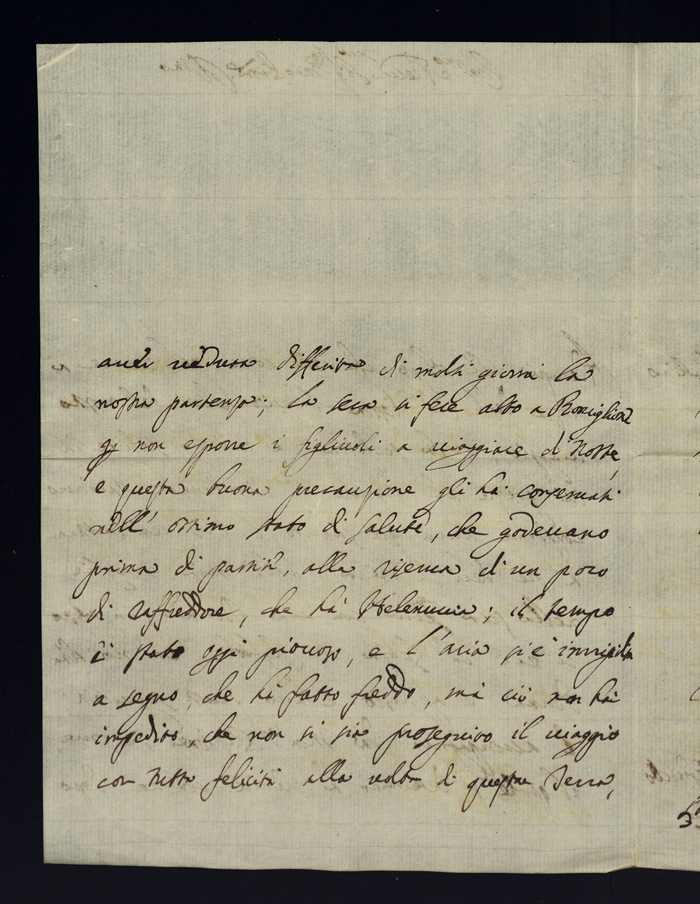 aver veduta differita di molti giorni la
nostra partenza; la sera si fece alto a Ronciglione
per non esporre i figliuoli a viaggiare di Notte,
e questa buona precauzione gli hà conservati
nell' ottimo stato di salute, che godevano
prima di partire, alla riserva di un poco
di raffreddore, che hà Helenuccia; il tempo
è stato oggi piovoso, e l'aria si è irrigidita
a segno, che hà fatto freddo, mà ciò non hà
impedito, che non si sia proseguito il viaggio
con tutta felicità alla volta di questa Terra,